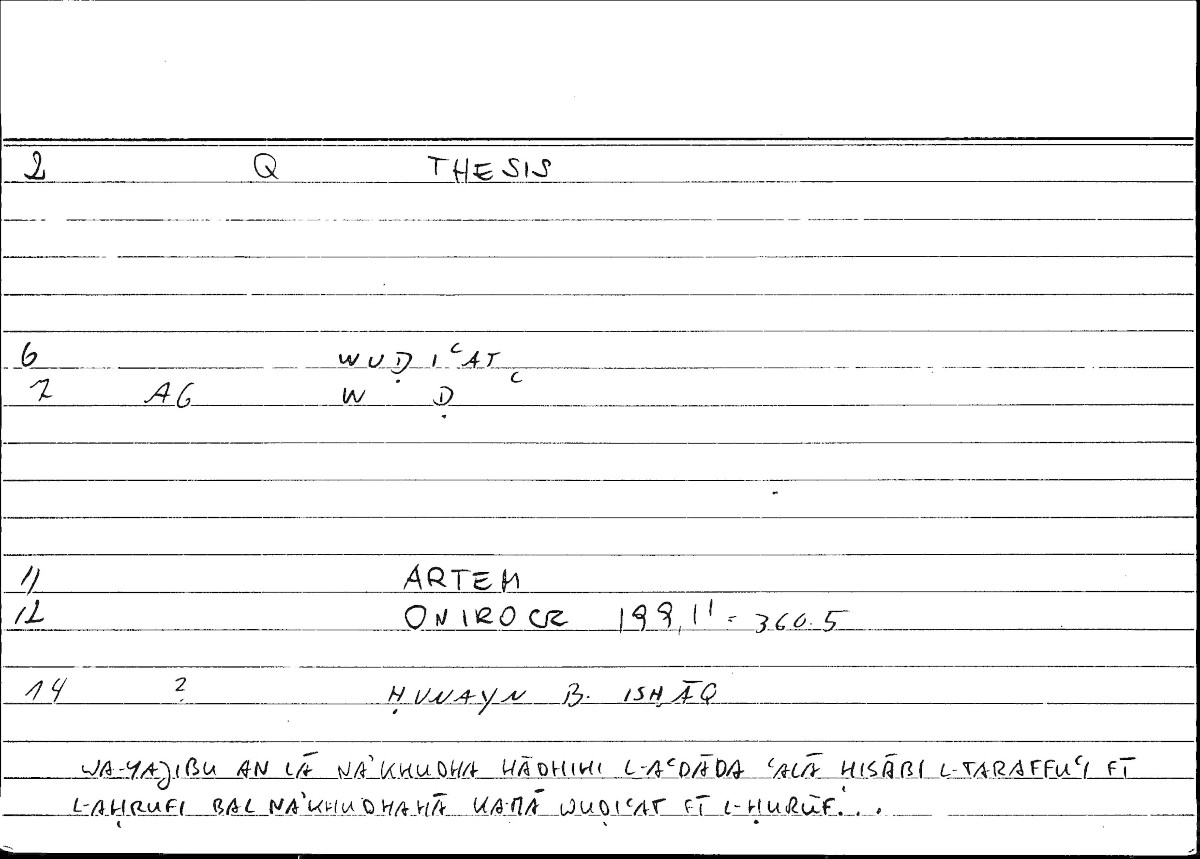 2 Q THESIS
6 WUḌIʿAT
7 AG WḌʿ
11 ARTEM
12 ONIROCR 199,11 = 360.5
14 2 ḤUNAYN B. ISḤĀQ
WA-YAJIBU AN LĀ NAʾKHUDHA HĀDHIHI L-AʿDĀDA ʿALĀ ḤISĀBI L-TARAFFUʿI FĪ
L-AḤRUFI BAL NAʾKHUDHAHĀ KAMĀ WUḌIʿAT FĪ L-ḤURŪF...